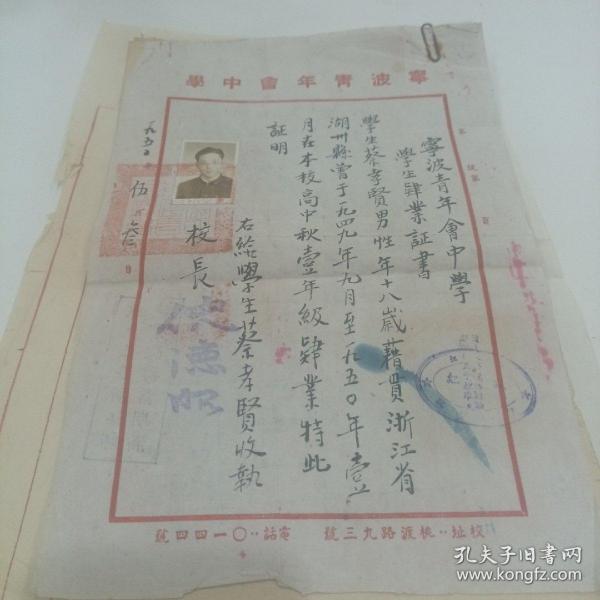 寧波青年會中學
寧波青年會中學
學生肄業証書
學生蔡孝賢男性年十八歲藉貫浙江省
湖州縣曾于一九四九年九月至一九五〇年壹
月在本校高中秋壹年級肄業特此
証明
右給學生蔡孝賢收執
校長
一九五〇
伍月叁日
校址：桃渡路九三號 電話：〇一四四號
孔夫子旧书网
www.kongfz.com